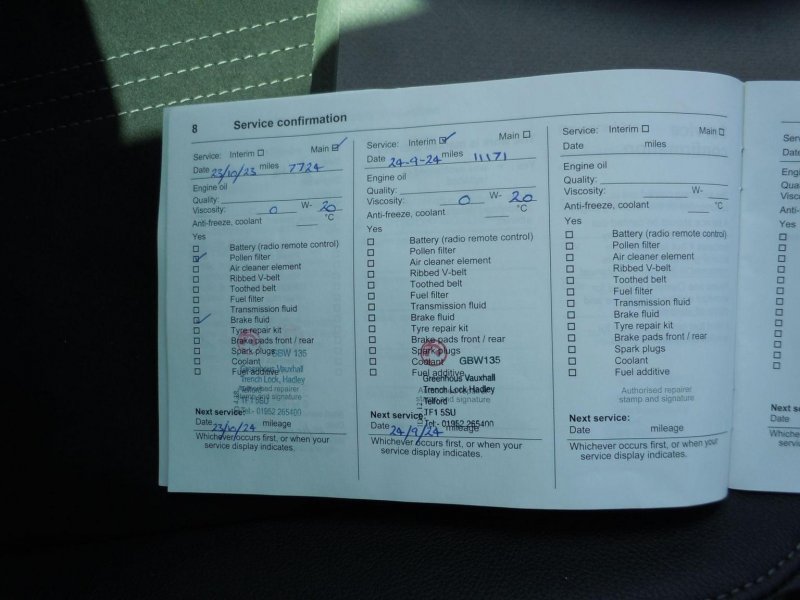 8 Service confirmation
Service: Interim ☐ Main ☑
Date 23/10/23 miles 7724
Engine oil
Quality:
Viscosity: 0 W- 20
Anti-freeze, coolant °C
Yes
Battery (radio remote control)
Pollen filter
Air cleaner element
Ribbed V-belt
Toothed belt
Fuel filter
Transmission fluid
Brake fluid
Tyre repair kit
Brake pads front / rear
Spark plugs
Coolant
Fuel additive
GBW 135
Greenhous Vauxhall
Trench Lock, Hadley
Telford
TF1 5SU
Tel:- 01952 265400
Authorised repairer
stamp and signature
Next service:
Date 23/10/24 mileage
Whichever occurs first, or when your
service display indicates.
Service: Interim ☑ Main ☐
Date 24-9-24 miles 11171
Engine oil
Quality:
Viscosity: 0 W- 20
Anti-freeze, coolant °C
Yes
Battery (radio remote control)
Pollen filter
Air cleaner element
Ribbed V-belt
Toothed belt
Fuel filter
Transmission fluid
Brake fluid
Tyre repair kit
Brake pads front / rear
Spark plugs
Coolant
Fuel additive
GBW135
Greenhous Vauxhall
Trench Lock, Hadley
Telford
TF1 5SU
Tel:- 01952 265400
Next service:
Date 24/9/24 mileage
Whichever occurs first, or when your
service display indicates.
Service: Interim ☐ Main ☐
Date miles
Engine oil
Quality:
Viscosity: W-
Anti-freeze, coolant °C
Yes
Battery (radio remote control)
Pollen filter
Air cleaner element
Ribbed V-belt
Toothed belt
Fuel filter
Transmission fluid
Brake fluid
Tyre repair kit
Brake pads front / rear
Spark plugs
Coolant
Fuel additive
Authorised repairer
stamp and signature
Next service:
Date mileage
Whichever occurs first, or when your
service display indicates.
Date
Yes
Next s
Date